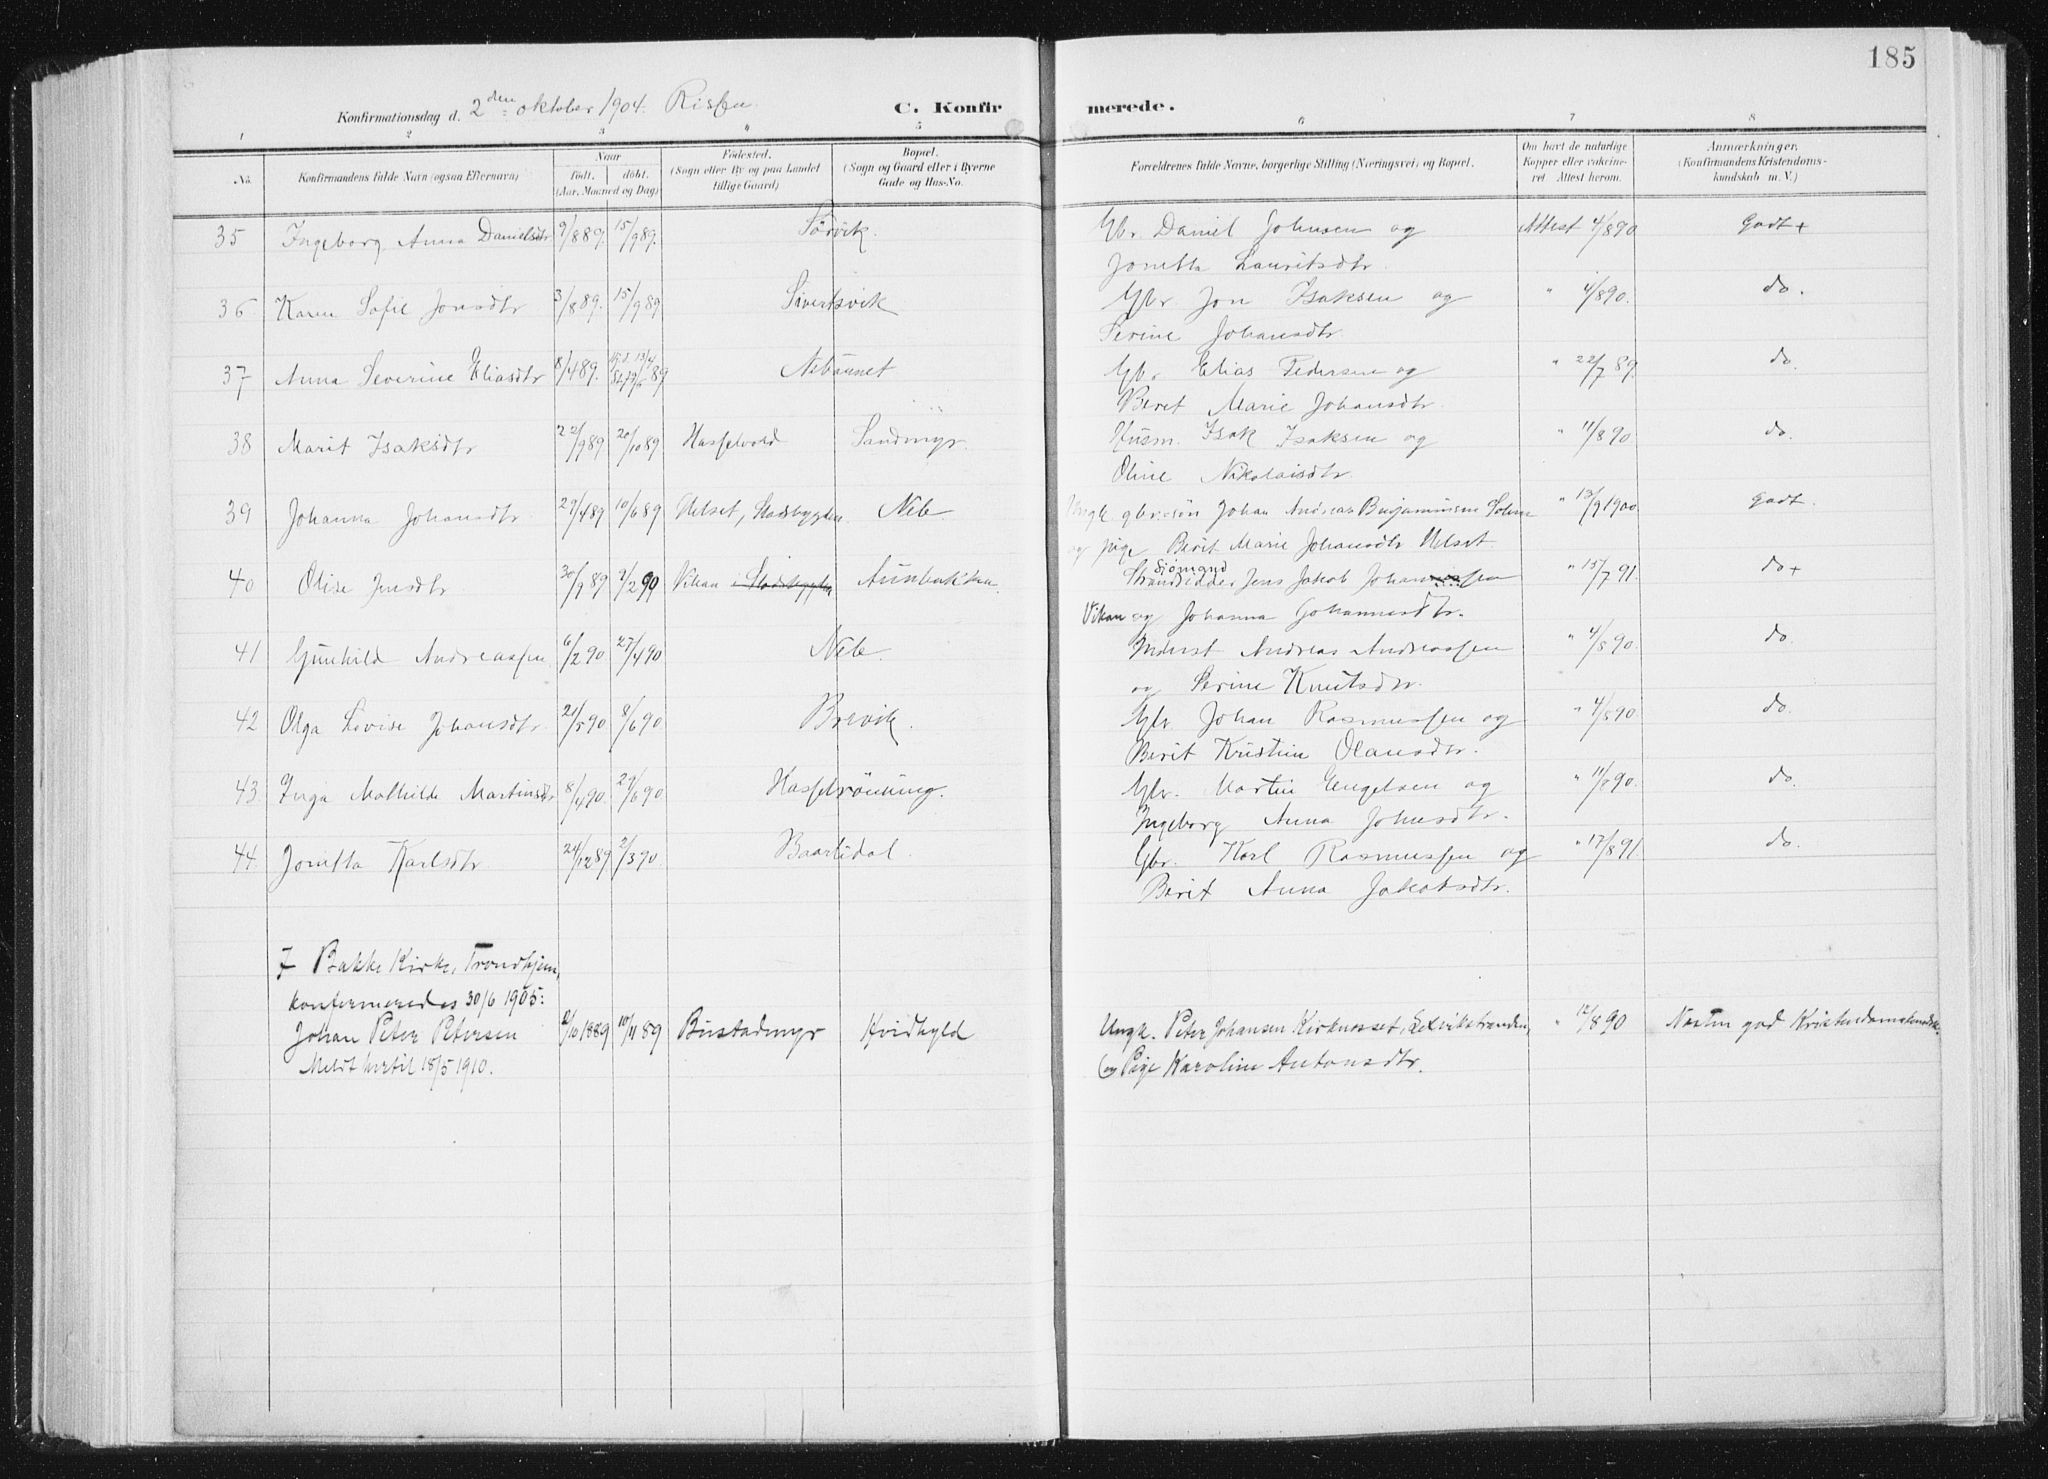 185
Konfirmationsdag d. 2den oktober 1904. Rissen.
C. Konfirmerede.
1 2 3 4 5 6 7 8
No. Konfirmandens fulde Navn (ogsaa Efternavn) Naar født. døbt. (Aar, Maaned og Dag) Fødested. (Sogn eller By og paa Landet tillige Gaard) Bopæl. (Sogn og Gaard eller i Byerne Gade og Hus-No. Forældrenes fulde Navne, borgerlige Stilling (Næringsvei) og Bopæl. Om havt de naturlige Kopper eller vakcineret. Attest herom. Anmærkninger. (Konfirmandens Kristendomskundskab m. V.)
35 Ingeborg Anna Danielsdtr 9/8 89. 15/9 89. Sörvik. Gbr. Daniel Johnsen og Attest 4/8 90 Godt +
Jonetta Lauritsdtr.
36 Karen Sofie Jonsdtr 3/8 89. 15/9 89 Sivertsvik Gbr. Jon Isaksen og " 4/8 90. do.
Serine Johansdtr.
37 Anna Severine Eliasdtr 8/4 89. Nebaunet Gbr. Elias Pedersen og " 22/7 89. do.
Beret Marie Johansdtr.
38 Marit Isaksdtr 22/9 89 20/10 89 Hasselvold Sandmyr. Husm. Isak Isaksen og " 11/8 90. do.
Oline Nikolaisdtr.
39 Johanna Johansdtr 29/4 89 10/6 89 Uelset, Stadsbygden Neb Ungk. gbr.sön Johan Andreas Benjaminsen Solem " 13/9 1900. Godt.
og pige Berit Marie Johansdtr Uelset
40 Olise Jensdtr 30/9 89 9/2 90 Vikan Stadsbygden Aunbakken. Sjömand Strandsidder Jens Jakob Johannessen " 15/7 91. do +
Vikan og Johanna Johannesdtr.
41 Gunhild Andreassen 6/2 90 27/4 90 Neb. Inderst Andreas Andreassen " 4/8 90. do.
og Serine Knutsdtr.
42 Olga Lovise Johansdtr. 21/5 90. 8/6 90. Brevik. Gbr. Johan Rasmussen og " 4/8 90. do.
Berit Kristine Olausdtr.
43. Inga Mathilde Martinsdtr 8/4 90. 29/6 90 Hasselrönning. Gbr. Martin Engelsen og " 11/8 90. do.
Ingeborg Anna Johnsdtr.
44. Jonetta Karlsdtr. 24/12 89 2/3 90. Baarlidal Gbr. Karl Rasmussen og " 17/8 91. do.
Berit Anna Jakobsdtr.
I Bakke Kirke, Trondhjem,
konfirmeredes 30/6 1905:
Johan Peter Petersen 2/10 1889 10/11 89 Bustadmyr Kvidhyld Ungk. Peter Johansen Kirknesset, Leksvikstranden, " 12/8 90 Næsten god Kristendomskundsk.
Meldt hertil 18/5 1910. og Pige Karoline Antonsdtr.